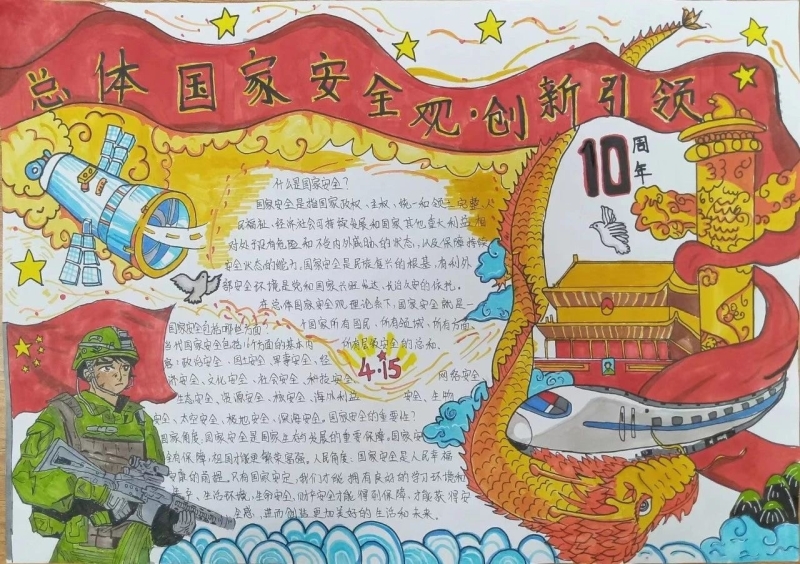 总体国家安全观·创新引领
10周年
什么是国家安全?
国家安全是指国家政权、主权、统一和领土完整、人
民福祉、经济社会可持续发展和国家其他重大利益相
对处于没有危险和不受内外威胁的状态,以及保障持续
安全状态的能力。国家安全是民族复兴的根基,有利外
部安全环境是党和国家兴旺发达、长治久安的保证。
在总体国家安全观理论系下,国家安全就是一
个国家所有国民、所有领域、所有方面、
所有层级安全的总和。
国家安全包括哪些方面?
当代国家安全包括16个方面的基本内
容:政治安全、国土安全、军事安全、经
济安全、文化安全、社会安全、科技安全、
网络安全
生态安全、资源安全、核安全、海外利益
安全、生物
安全、太空安全、极地安全、深海安全。国家安全的重要性?
国家角度,国家安全是国家生存与发展的重要保障。国家安
全有保障,祖国才能更繁荣富强。人民角度:国家安全是人民幸福
安康的前提。只有国家安定,我们才能拥有良好的学习环境和
生活环境,生命安全、财产安全才能得到保障,才能获得安
全感,进而创造更加美好的生活和未来。
4·15